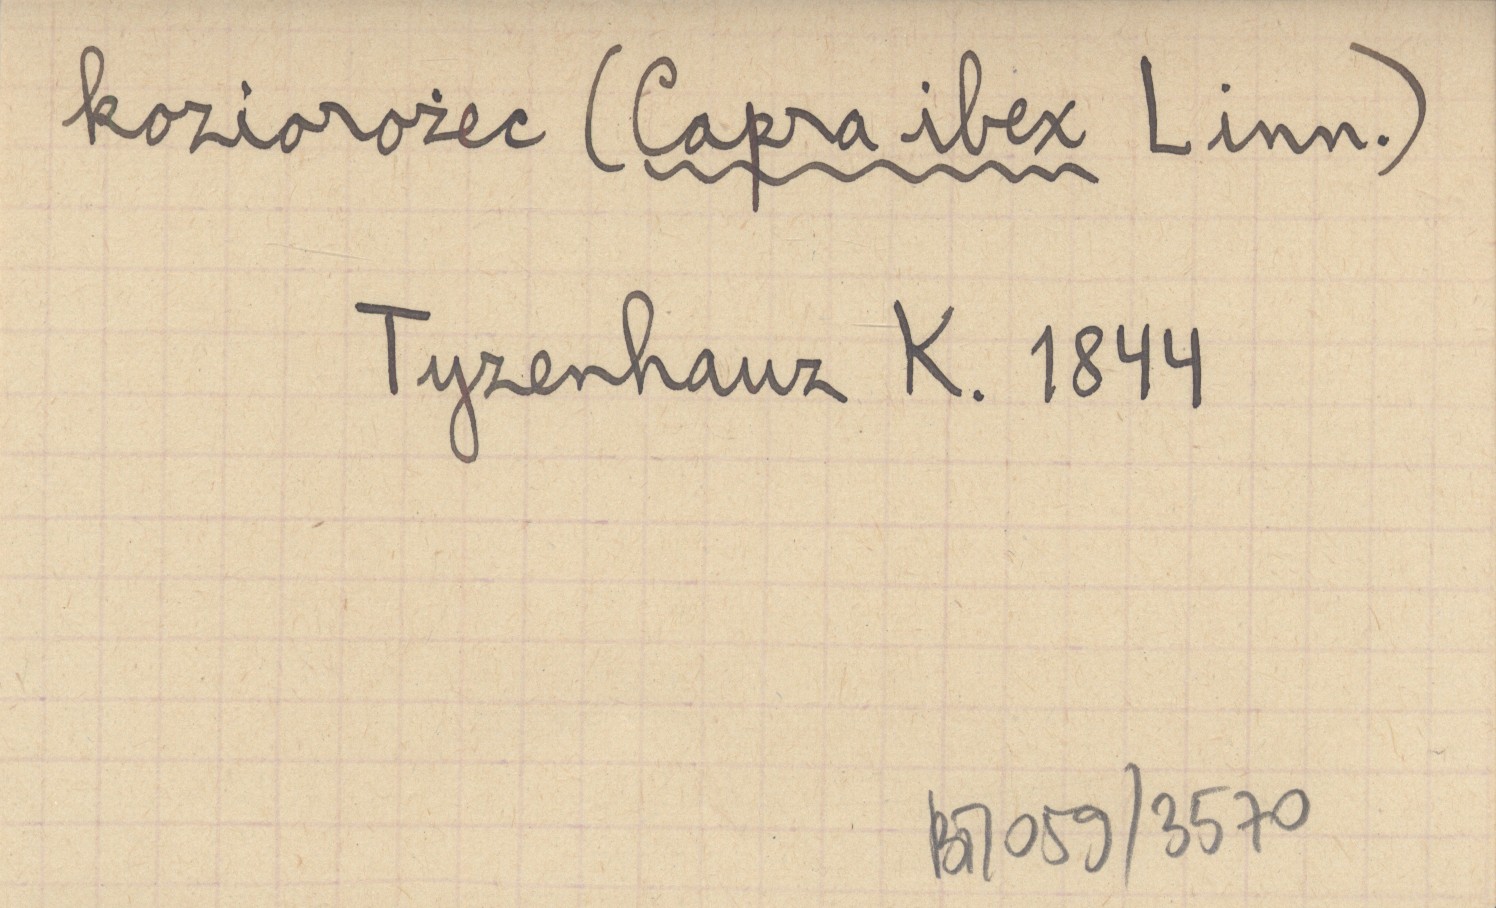 koziorożec (Capra ibex Linn.)
Tyzenhauz K. 1844
059/3570